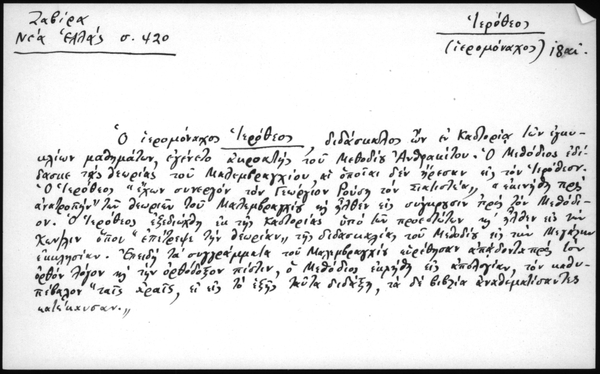 Ζαβίρα
Νέα Ἑλλάς σ. 420
Ἱερόθεος
(ἱερομόναχος) 18 αἰ.
Ὁ ἱερομόναχος Ἱερόθεος, διδάσκαλος ὤν ἐν Καστορίᾳ τῶν ἐγκυ-
κλίων μαθημάτων, ἐγένετο ἀκροατής τοῦ Μεθοδίου Ἀνθρακίτου. Ὁ Μεθόδιος ἐδί-
δασκε τάς θεωρίας τοῦ Μαλεμβραγχίου, αἱ ὁποῖαι δέν ἤρεσαν εἰς τόν Ἱερόθεον.
Ὁ Ἱερόθεος "ἔχων συνεργόν τόν Γεώργιον Ρούση τόν πιαλιστέα,, ἐκινήθη πρός
ἀνατροπήν τῶν θεωριῶν τοῦ Μαλεμβραγχίου κ' ἦλθεν εἰς σύγκρουσιν πρός τόν Μεθόδι-
ον. Ὁ Ἱερόθεος ἐξεδιώχθη ἐκ τῆς Καστορίας ὑπό τῶν προεστώτων κ' ἦλθεν εἰς τήν
Κων/λιν ὅπου "ἐπέτρεψε τήν θεωρίαν,, τῆς διδασκαλίας τοῦ Μεθοδίου εἰς τήν Μεγάλην
ἐκκλησίαν. Ἐπειδή τά συγγράμματα τοῦ Μαλεμβραγχίου εὑρέθησαν ἀπᾴδοντα πρός τόν
ὀρθόν λόγον κ' τήν ὀρθόδοξον πίστιν, ὁ Μεθόδιος ἐκλήθη εἰς ἀπολογίαν, τόν καθυ-
πέβαλον "ταῖς ἀραῖς, εἰ εἰς τό ἑξῆς ταῦτα διδάξῃ, τά δέ βιβλία ἀναθεματίσαντες
κατέκαυσαν.,,